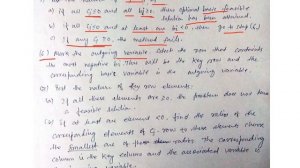 a) if all Cj≤0 and all bj≥0, then optimal basic feasible
solution has been attained.
b) if all Cj≤0 and at least one bj<0, then go to step (6.)
c) if any Cj ≥0, the method fails.
(6.) Mark the outgoing variable. Select the row that contains
the most negative bj. This will be the key row and the
corresponding basic variable is the outgoing variable.
Test the nature of key row elements:
(a) If all these elements are ≥0, the problem does not have
a feasible solution.
(b) If at least one element <0, find the ratios of the
corresponding elements of Cj-row to these elements. choose
the smallest of these ratios. The corresponding
column is the key column and the associated variable is